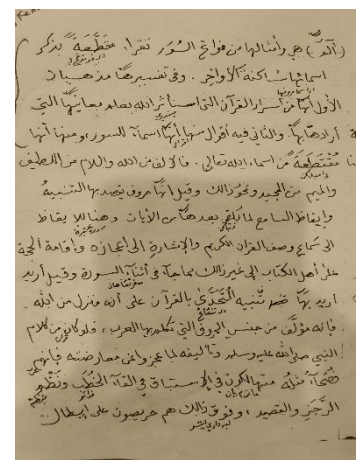 (آلمّ) هي وأمثالها من فواتح السُّوَر تقرأ مقطَّعَة بذكر
اسمائها ساكنة الأواخر. وفي تفسيرها مذهبان
الأول أنها من أسرار القرآن التي استأثر الله بعلم معانيها التي
أرادها بها والثاني فيه أقوال منها أنها أسماء للسور، ومنها أنها
مُقْتَطَعَة من أسماء الله تعالى. فالالف من الله واللام من اللطيف
والميم من المجيد ونحو ذالك وقيل أنها حروف يقصد بها التنبيه
وإيقاظ السامع لما يُلقى بعدها من الأيات وهنا للايقاظ
الى سماع وصف القرآن الكريم والإشارة إلى اعجازه وإقامة الحجة
على أهل الكتاب الى غير ذالك مما جاء في أثناء السورة وقيل أريد
أريد بها تنبيه التَّحَدِّي بالقرآن على أنه منزل من الله.
فإنه مؤلَّف من جنس الحروف التي تتكلم بها العرب، فلو كان من كلام
النبي صلى الله عليه وسلم وتأليفه لما عجزوا عن معارضته فإنهم
فُصَحَاءُ مثلُه متهالكون في الاستباق في القاء الخُطَب ونَظْمِ
الرَّجَزِ والقصيد، وفوق ذالك هم حريصون على إبطال